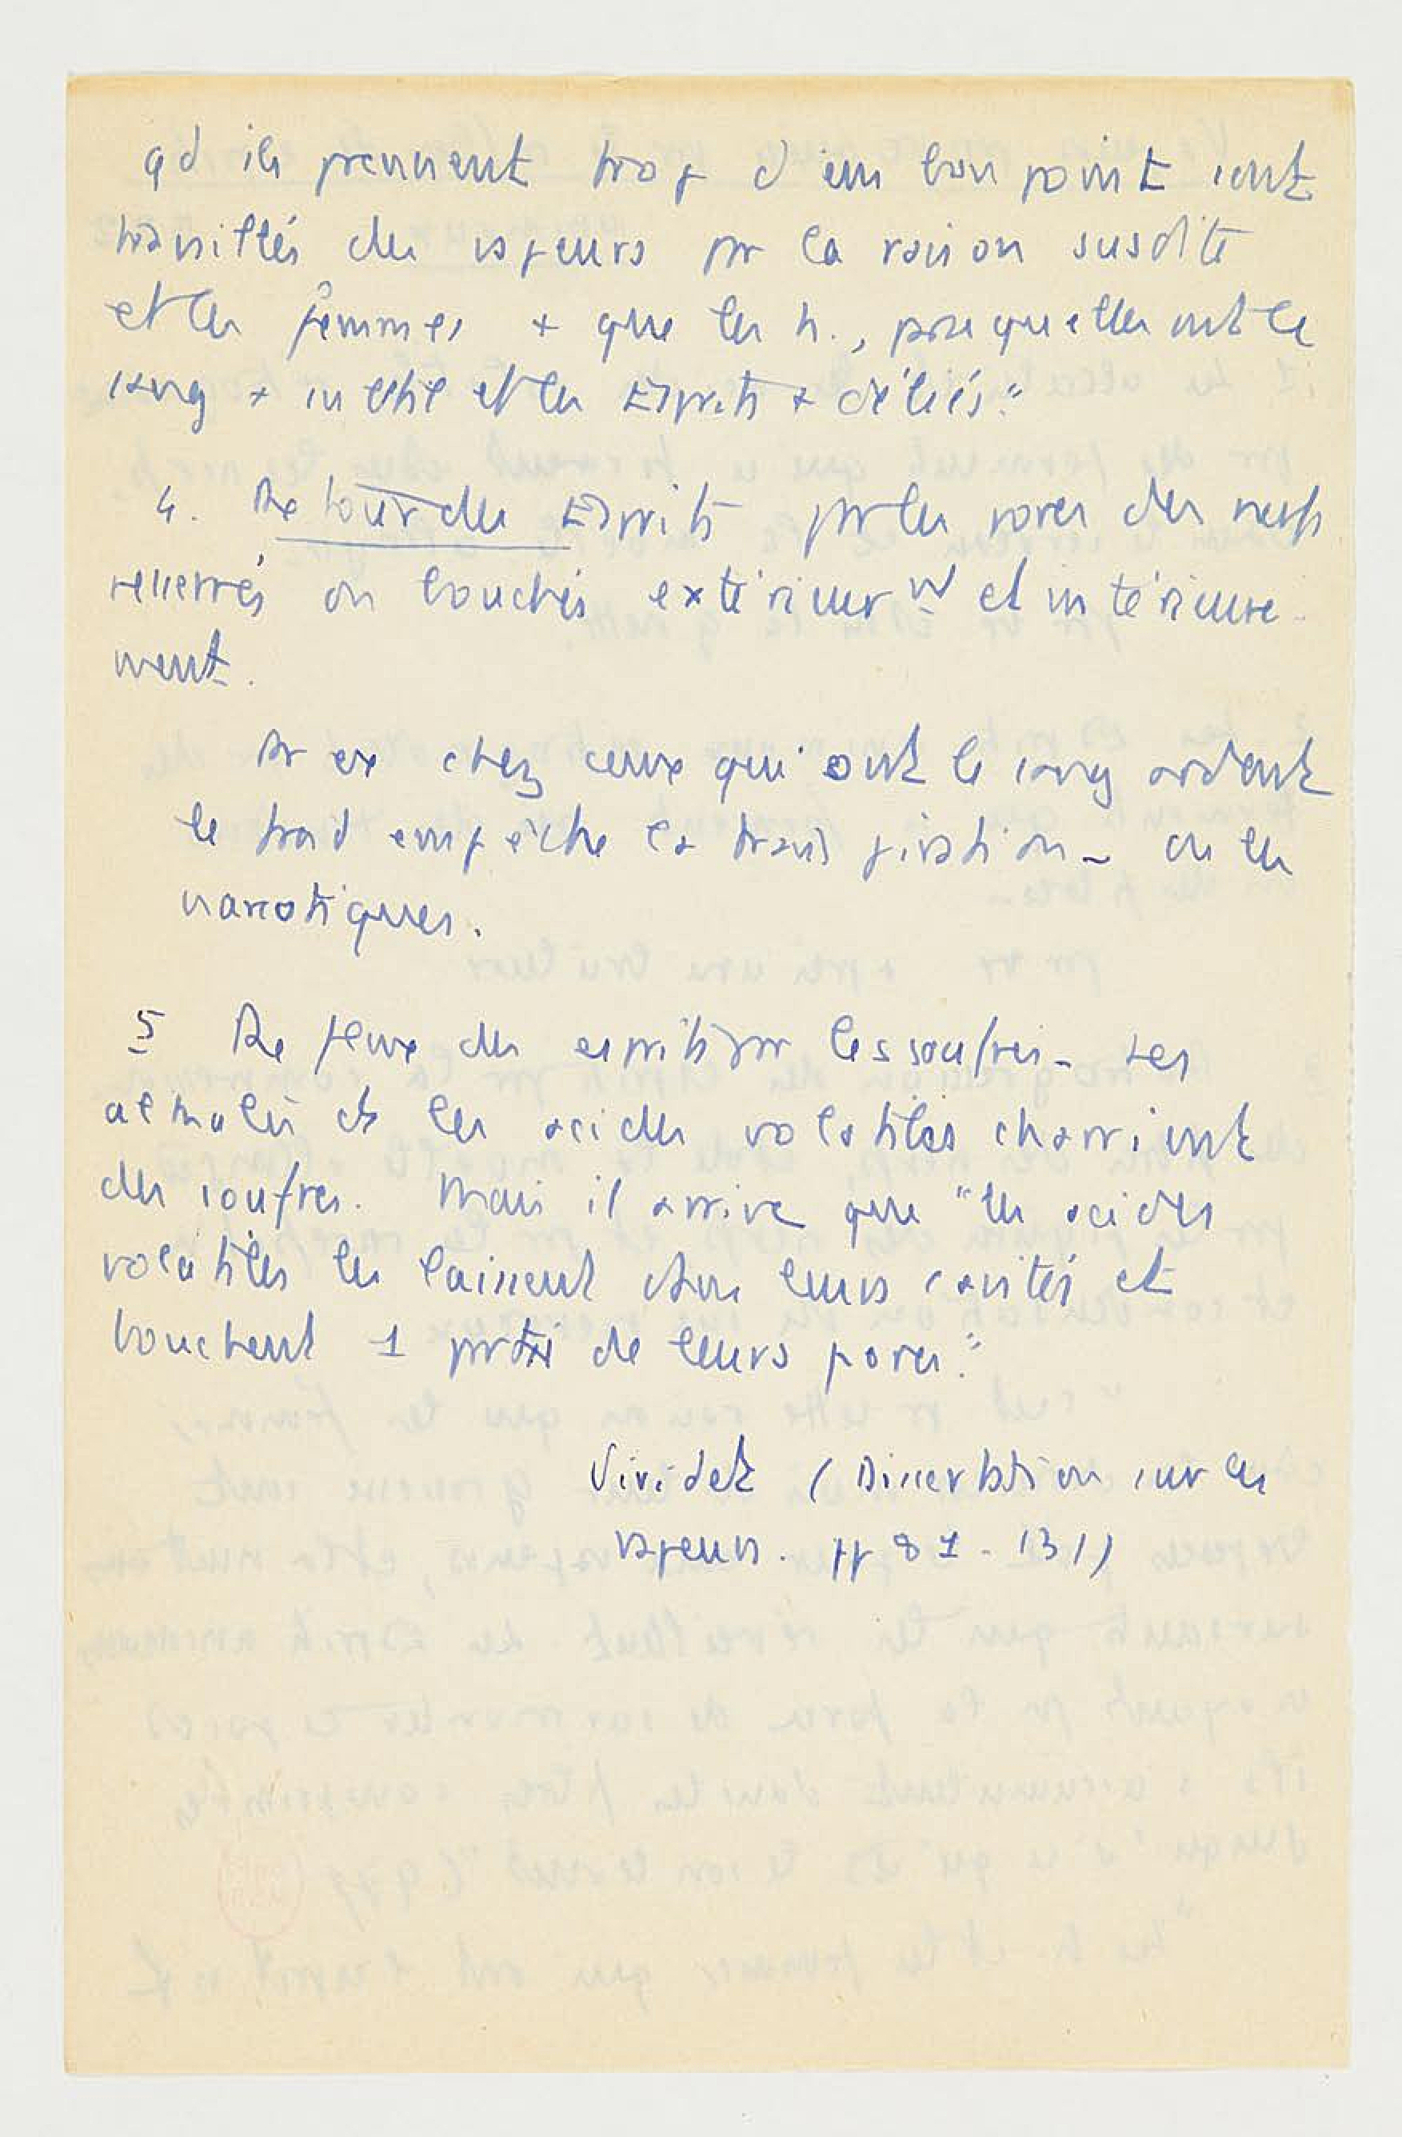 qd ils prennent trop d'embonpoint sont
travaillés des vapeurs pr la raison susdite
et les femmes + que les h., pse qu'elles ont le
sang + subtil et les Esprits + déliés."
4. Retour des Esprits pr les pores des nerfs
resserrés ou bouchés extérieurt et intérieure-
ment.
Par ex chez ceux qui ont le sang ardent
le froid empêche la transpiration - ou les
narcotiques.
5 Par feux des esprits pr les soufres - Les
alkalis et les acides volatiles charrient
des soufres. Mais il arrive que "les acides
volatiles les laissent dans leurs cavités et
bouchent 1 partie de leurs pores."
Viridet (Dissertation sur les
vapeurs. pp 81 - 131)